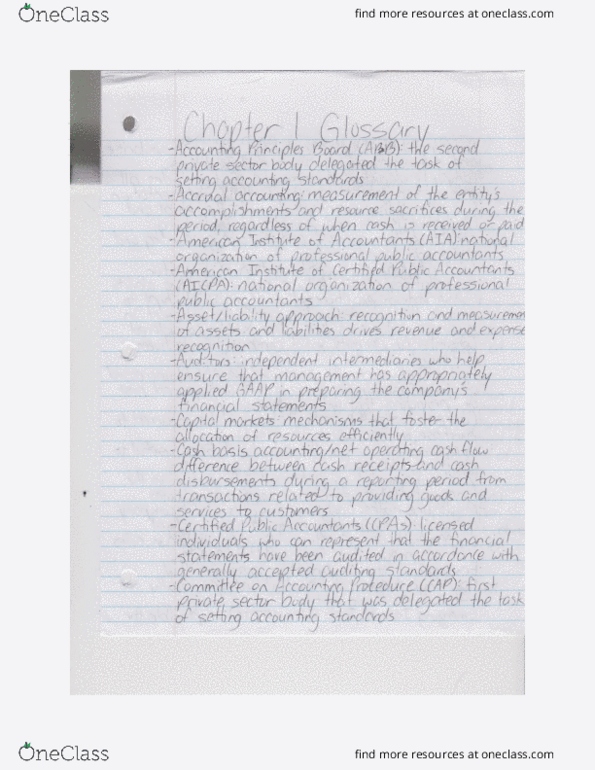 OneClass
find more resources at oneclass.com
Chapter 1 Glossary
-Accounting Principles Board (APB): the second
private sector body delegated the task of
setting accounting standards
-Accrual accounting: measurement of the entity's
accomplishments and resource sacrifices during the
period, regardless of when cash is received or paid
-American Institute of Accountants (AIA): national
organization of professional public accountants
-American Institute of Certified Public Accountants
(AICPA): national organization of professional
public accountants
-Asset/liability approach: recognition and measuremen
of assets and liabilities drives revenue and expense
recognition
-Auditors: independent intermediaries who help
ensure that management has appropriately
applied GAAP in preparing the company's
financial statements
-Capital markets: mechanisms that foster the
allocation of resources efficiently
-Cash basis accounting/net operating cash flow
difference between cash receipts and cash
disbursements during a reporting period from
transactions related to providing goods and
services to customers
-Certified Public Accountants (CPAs): licensed
individuals who can represent that the financial
statements have been audited in accordance with
generally accepted auditing standards
-Committee on Accounting Procedure (CAP): first
private sector body that was delegated the task
of setting accounting standards
OneClass
find more resources at oneclass.com